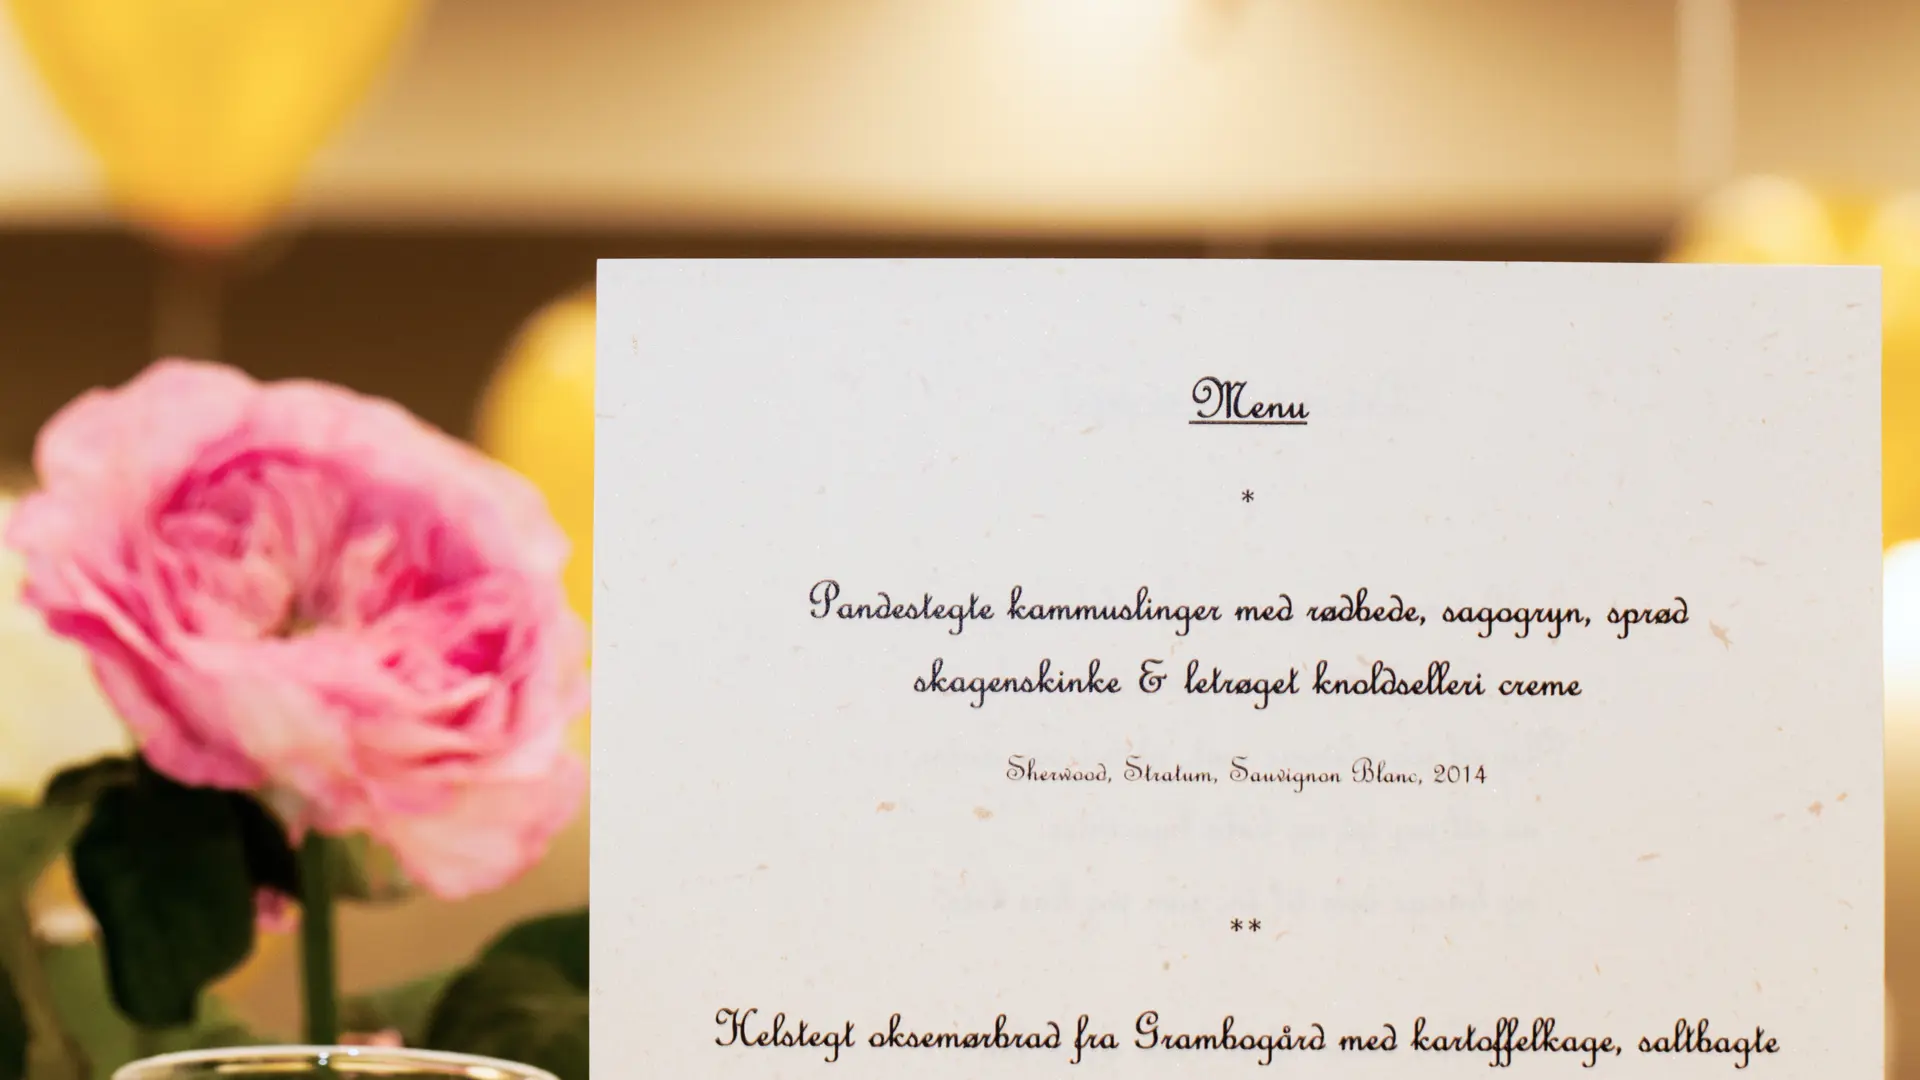 Menu
*
Pandestegte kammuslinger med rødbede, sagogryn, sprød
skagenskinke & letrøget knoldselleri creme
Sherwood, Stratum, Sauvignon Blanc, 2014
**
Helstegt oksemørbrad fra Grambogård med kartoffelkage, saltbagte